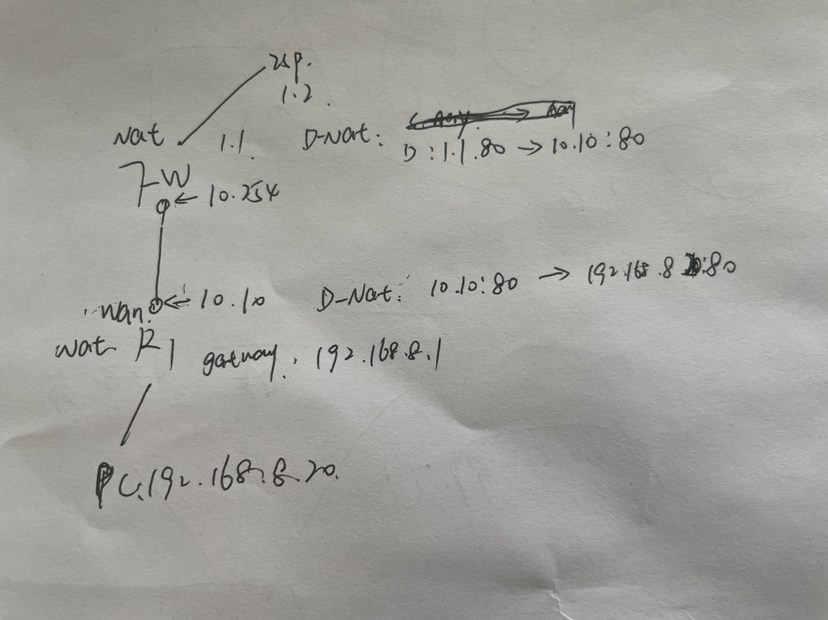 ISP.
1.2
Nat 1.1. D-Nat:
D: 1.1.80 → 10.10:80
FW ← 10.254
Wan ← 10.10 D-Nat: 10.10:80 → 192.168.8.20:80
Nat R1 gateway. 192.168.8.1
PC.192.168.8.20.